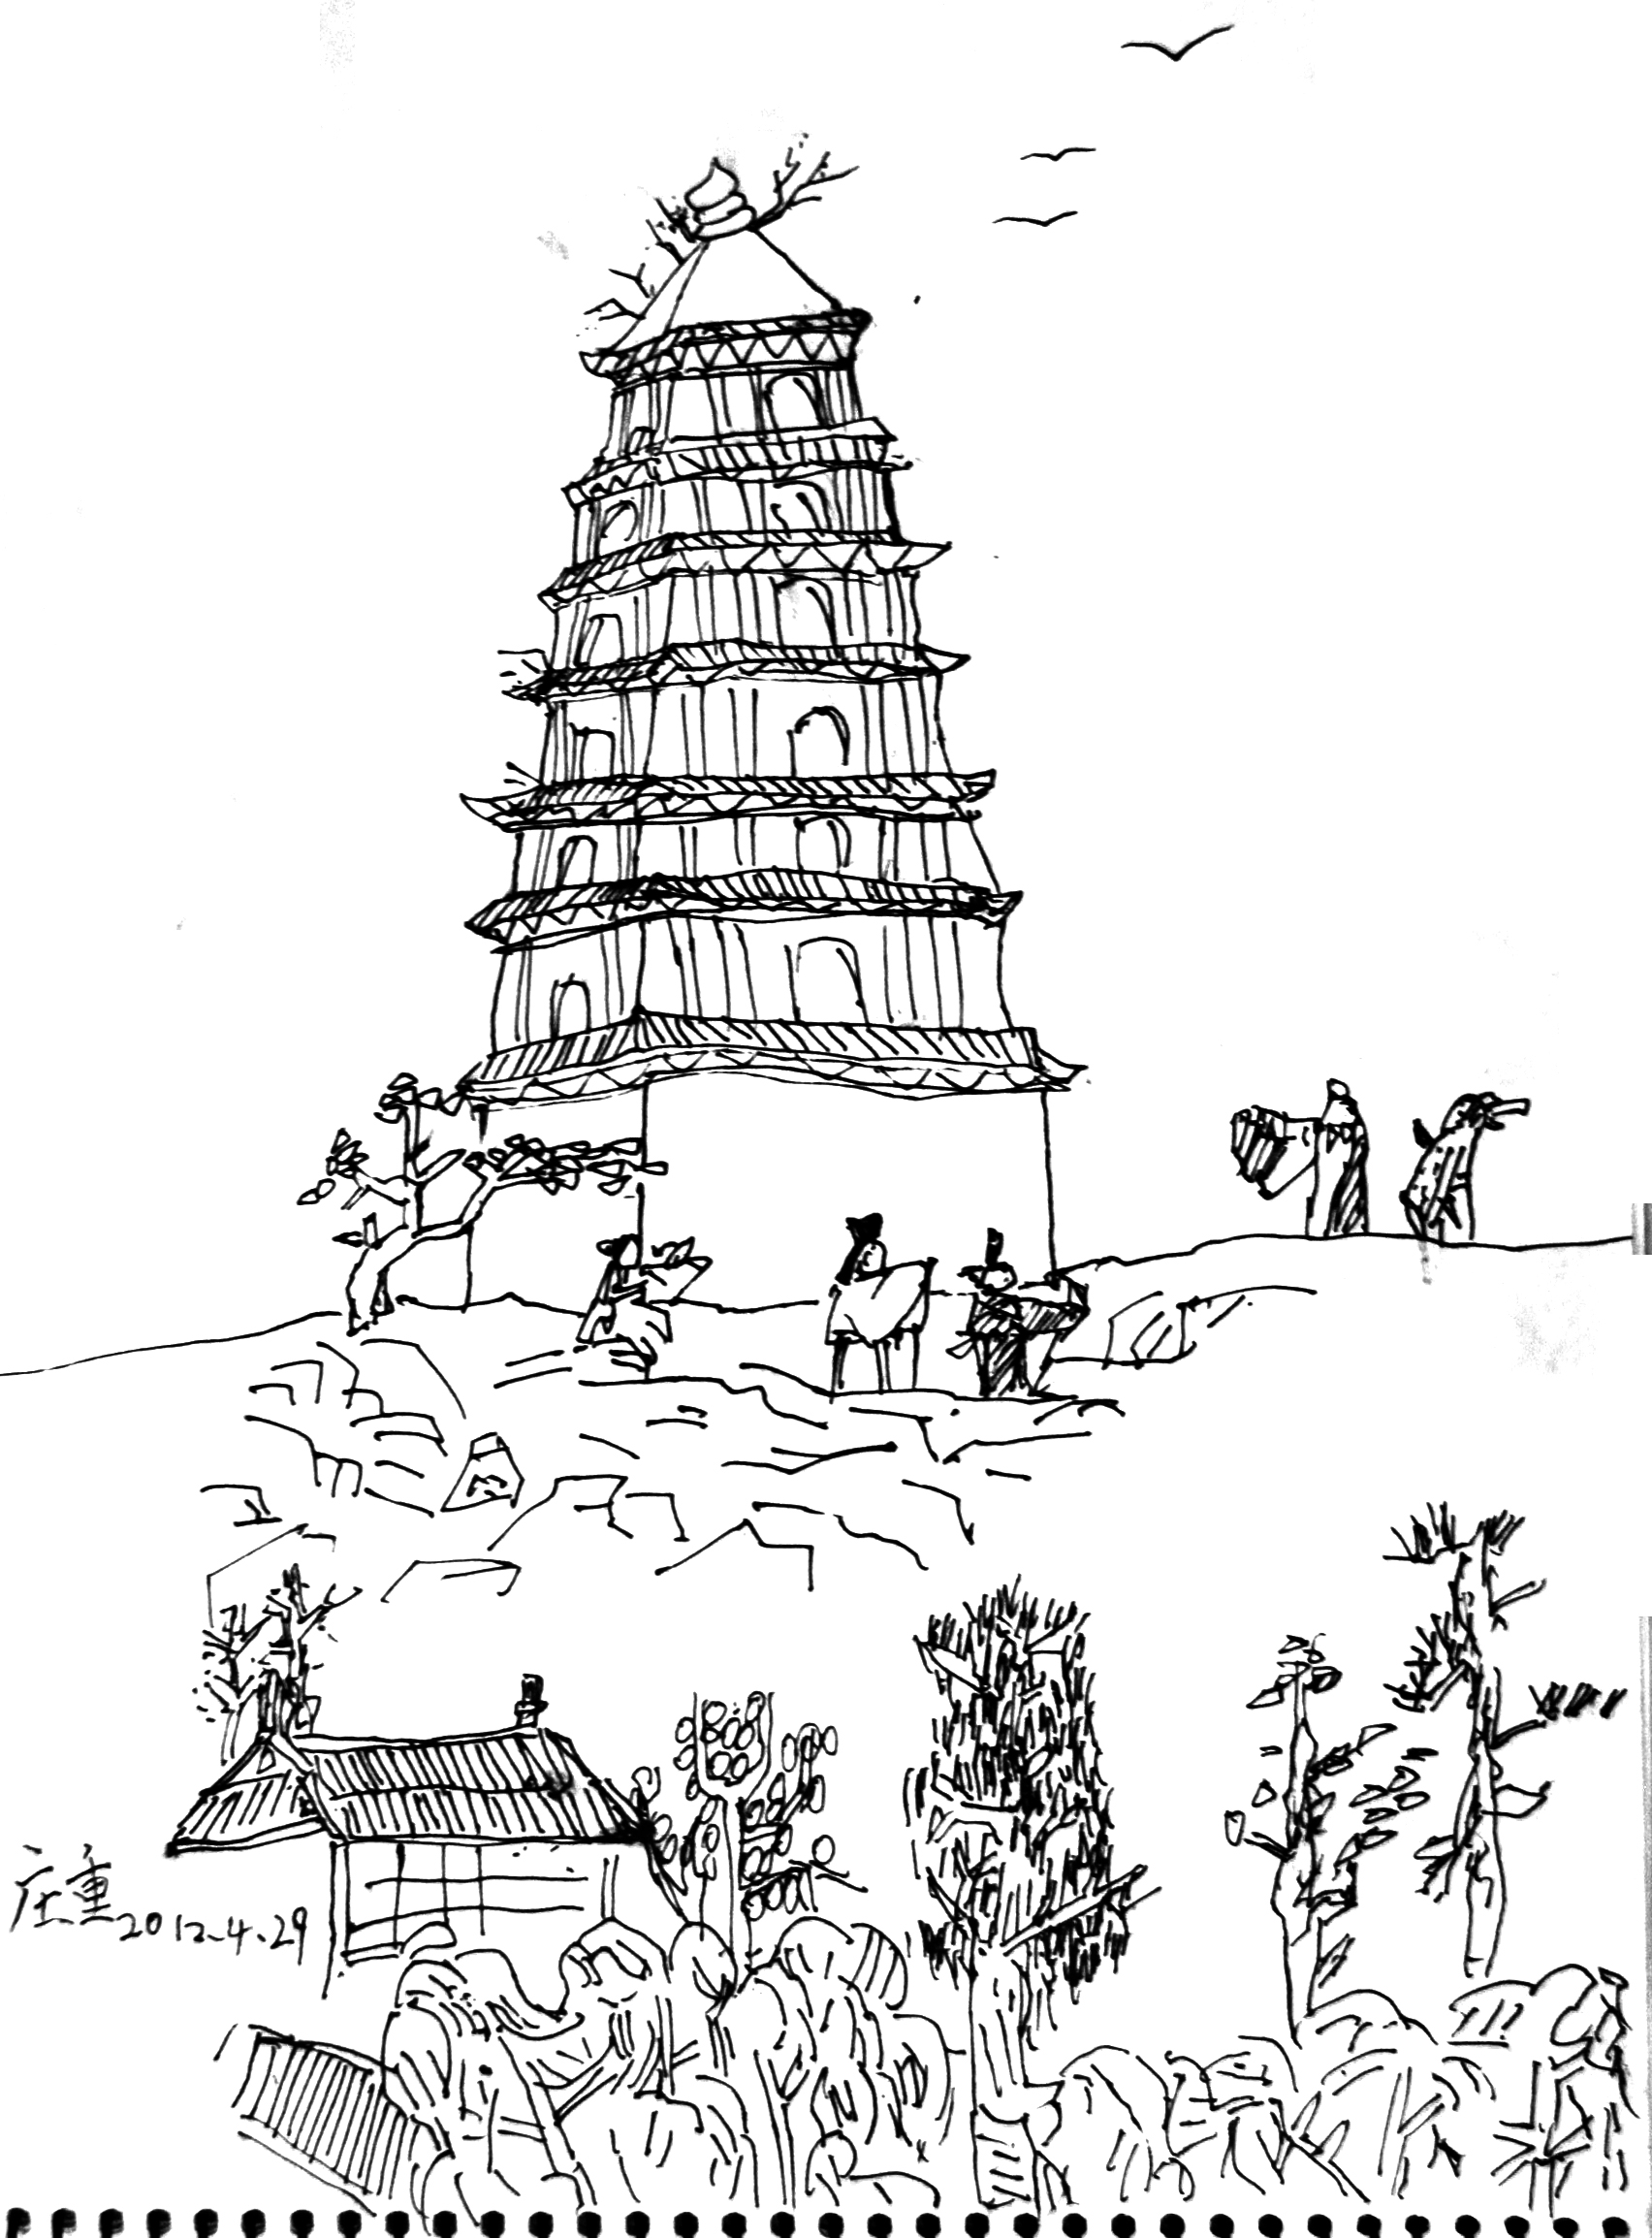 庄重2012.4.29